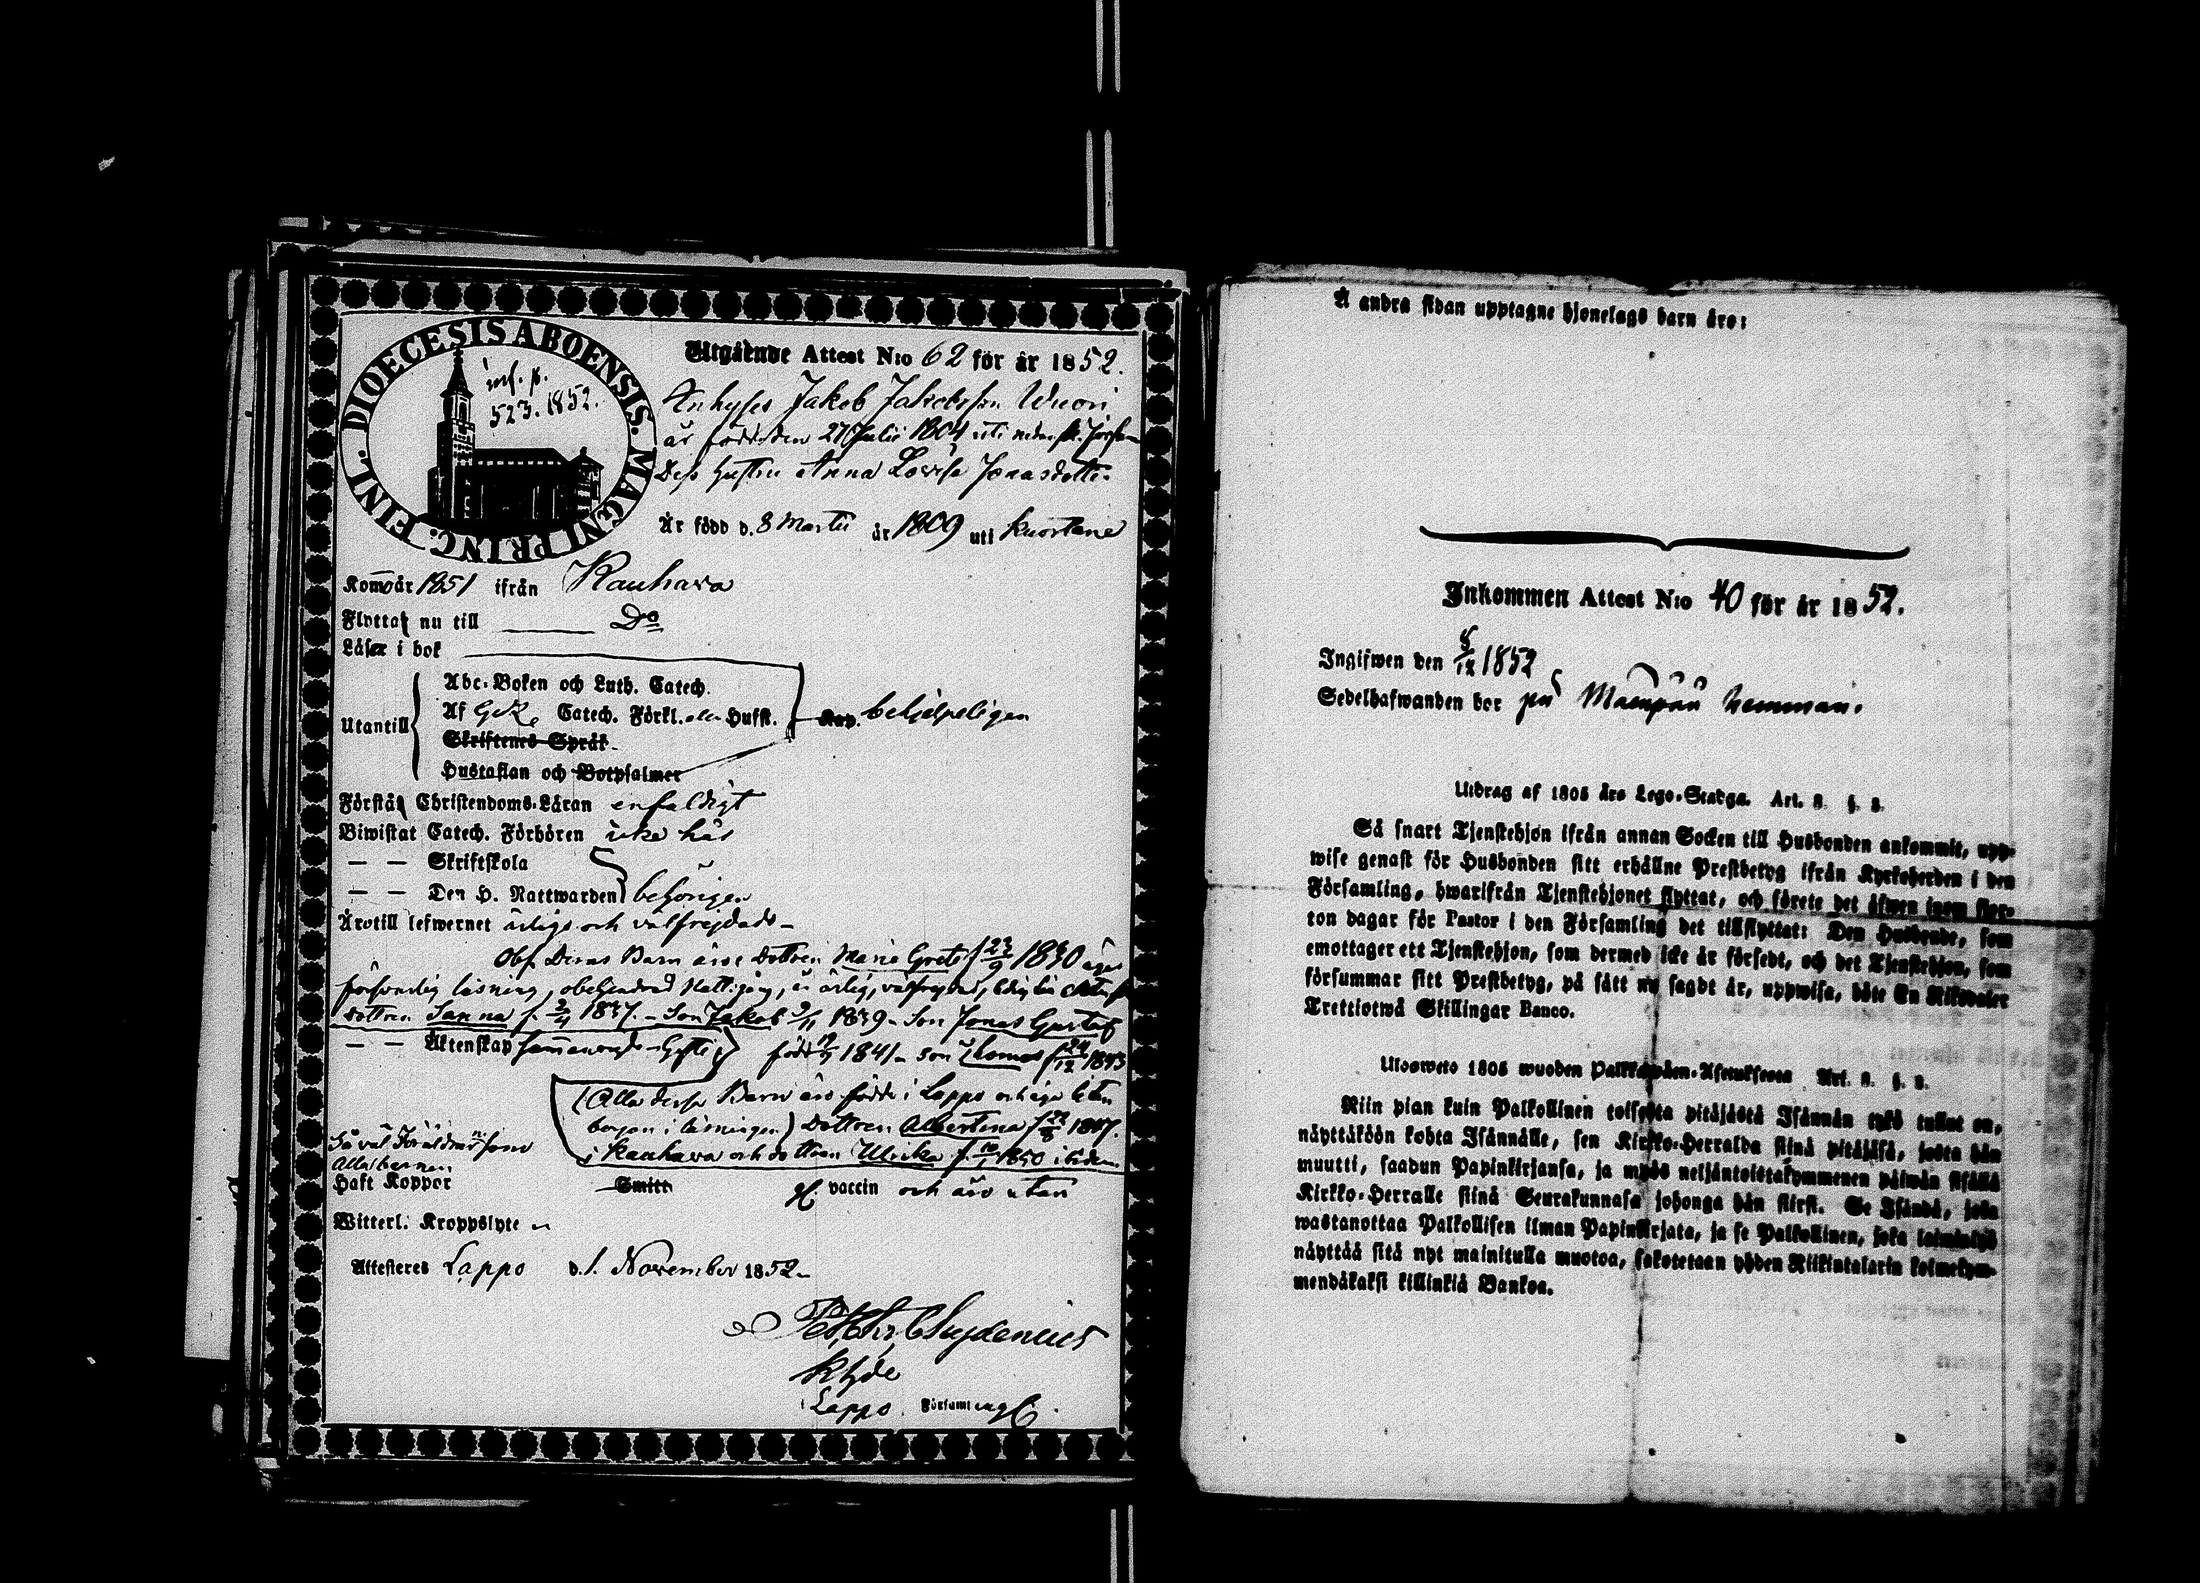 DIOECESIS ABOENSIS. MAGNI PRINC. FINL.
inf. p.
523. 1852.
Utgående Attest N:o 62 för år 1852.
Enhyses Jakob Jakobsson Wuori
är född den 27 Julii 1804 uti
Dess hustru Anna Lovisa Jonasdotter
Är född d. 8 Martii år 1809 uti Kuortane
Kommo år 1851 ifrån Kauhava
Flytta nu till Do
Läser i bok
Utantill
Abc-Boken och Luth. Catech.
Af Catech. Förkl. eller Husf.
Skriftenes Språk
Hustaflan och Botpsalmer
behjelpeligen
Förstå Christendoms-Läran enfaldigt
Biwistat Catech. Förhören icke här
— — Skriftskola
— — Den H. Nattwarden behörigen
Äro till lefwernet ärliga och välfrejdade
Obs. Deras Barn äro: dottren Maria Greta f. 23/9 1830 äger
försvarlig läsning, obehindrad Nattvgång, är ärlig, välfrejdad, ledig till
dottren Sanna f. 1837. - Son Jakob 1839 - Son Jonas Gustaf
— — Äktenskap född 1841 - son Thomas f. 24/12 1843
(Alla dessa Barn äro födde i Lappo och äga liten
början i läsningen) Dottren Albertina f. 1847.
i Kauhava och dottren Ulrika f. 1850
Så väl Föräldrarne som
Alla barnen
Haft Koppor Smitt. gl. vaccin och äro utan
Witterl. Kroppslyte
Attesteras Lappo d. 1. November 1852
Chydenius
Lappo Församling
Å andra sidan upptagne hjonelags barn äro:
Inkommen Attest N:o 40 för år 1852.
Ingifwen den 5/12 1852
Sedelhafwanden bor på Mäenpää hemman.
Utdrag af 1805 års Lego-Stadga. Art. 8. §. 8.
Så snart Tjenstehjon ifrån annan Socken till Husbonden ankommit, upp-
wise genast för Husbonden sitt erhållne Prestbetyg ifrån Kyrkoherden i den
Församling, hwarifrån Tjenstehjonet flyttat, och förete det äfwen inom fjor-
ton dagar för Pastor i den Församling det tillflyttat: Den Husbonde, som
emottager ett Tjenstehjon, som dermed icke är försedt, och det Tjenstehjon, som
försummar sitt Prestbetyg, på sätt nu sagdt är, uppwisa, böte En Riksdaler
Trettiotwå Skillingar Banco.
Ulosweto 1805 wuoden Palkkawäen-Asetuksesta Art. 8. §. 8.
Niin pian kuin Palkollinen toisesta pitäjästä Isännän tykö tullut on,
näyttäköön kohta Isännälle, sen Kirkko-Herralda siinä pitäjäsä, josta hän
muutti, saadun Papinkirjansa, ja myös neljäntoistakymmenen päiwän sisällä
Kirkko-Herralle siinä Seurakunnasa johonga hän siirsi. Se Isändä, joka
wastanottaa Palkollisen ilman Papinkirjata, ja se Palkollinen, joka laiminlyö
näyttää sitä nyt mainitulla muotoa, sakotetaan yhden Riikintalarin kolmekym-
mendäkaksi killinkiä Bankoa.